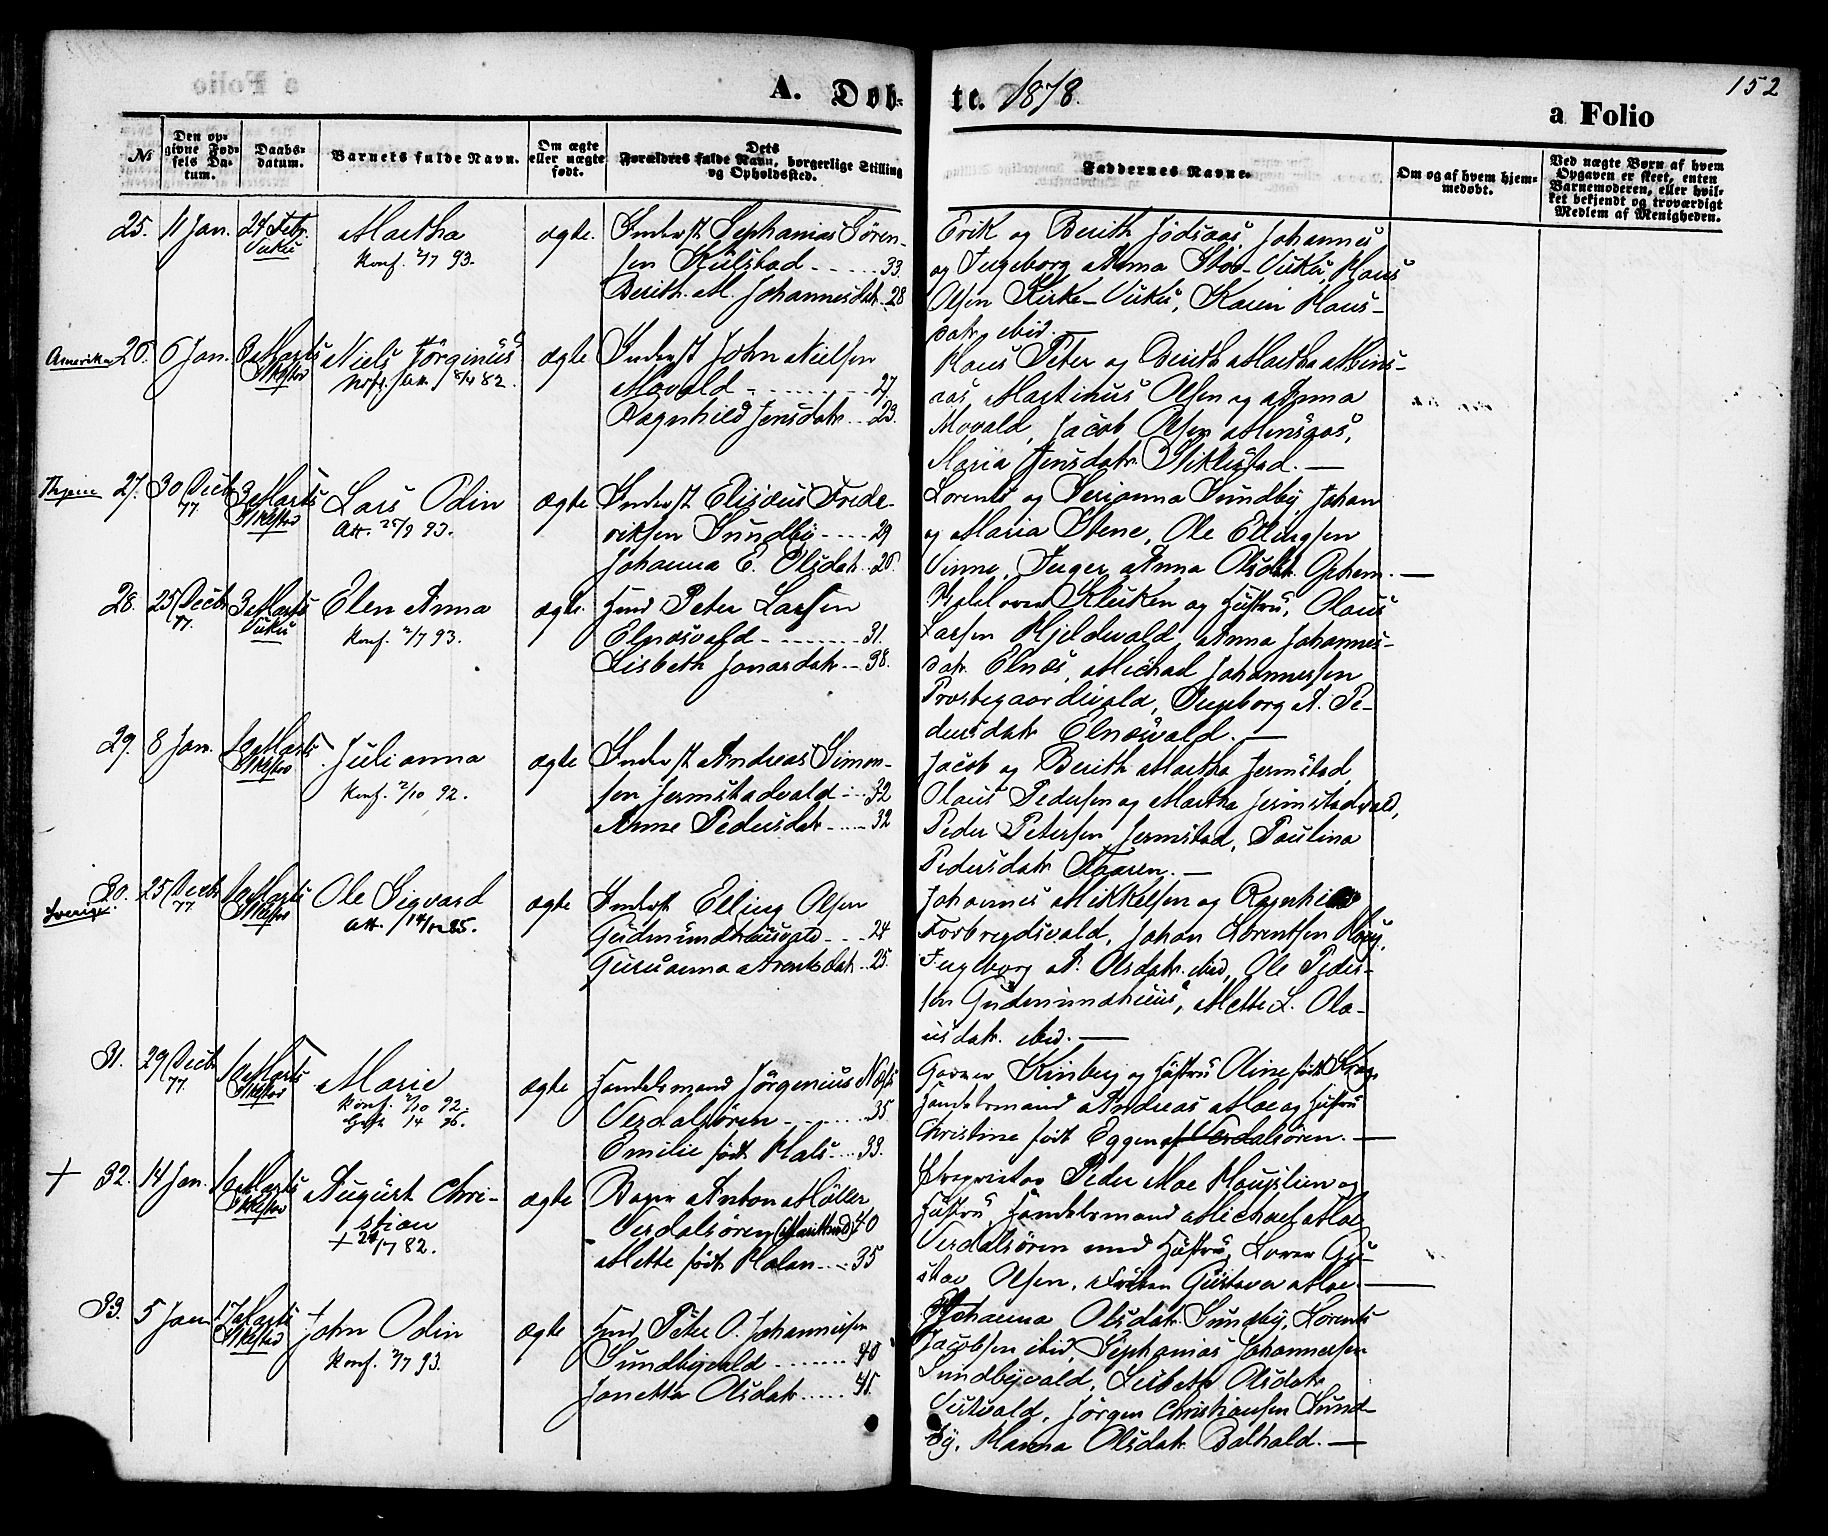 152
A. Døb-
te. 1878.
a Folio
№
Den op-
givne Fød-
sels Da-
tum.
Daabs-
datum.
Barnets fulde Navn.
Om ægte
eller uægte
født.
Dets
Forældres fulde Navn, borgerlige Stilling
og Opholdssted.
Faddernes Navne.
Om og af hvem hjem-
medøbt.
Ved uægte Børn af hvem
Opgaven er skeet, enten
Barnemoderen, eller hvil-
ket bekjendt og troværdigt
Medlem af Menigheden.
25. 11 Jan. 24 Febr.
Vuku
Martha
Konf. 2/7 93.
ægte.
Inderst Sephanias Søren-
sen Kulstad - - - 33.
Berith M. Johannesdatr - 28
Erik og Berith Jødsaas, Johannes
og Ingeborg Anna Stor-Vuku, Klaus
Olsen Kirke-Vuku, Karen Klaus-
datr ibid. —
Amerika 26. 6 Jan. 3 Marts
Stiklestad
Niels Jørginus
ægte
Inderst John Nielsen
Movald - - - 27.
Ragnhild Jensdatr - 23.
Klaus Peter og Berith Martha Mins-
aas, Martinus Olsen og Anna
Movald, Jacob Olsen Minsaas,
Maria Jensdatr Stiklestad. —
27. 30 Decbr
77
3 Marts
Stiklestad
Lars Odin
Att. 25/9 93.
ægte
Inderst Elisæus Frede-
riksen Sundby - - - 29
Johanna E. Olsdatr - 26.
Lorents og Serianna Sundby, Johan
og Maria Stene, Ole Ellingsen
Vinne, Inger Anna Olsdtr —
28. 25 Decbr
77.
3 Marts
Vuku
Elen Anna
Konf. 2/7 93.
ægte.
Husmd Peter Larsen
Elnesvald - - - 31.
Lisbeth Jonasdatr - 38.
og Hustru, Olaus
Larsen Hjeldevald, Anna Johannes-
datr Elnes, Michael Johannessen
Præstegaardsvald, Ingeborg A. Pe-
dersdatr Elnesvald. —
29. 8 Jan. 10 Marts
Stiklestad
Julianna
Konf. 2/10 92.
ægte
Inderst Andreas Simon-
sen Jermstadvald - - 32
Anne Pedersdatr - - 32
Jacob og Berith Martha Jermstad
Olaus Pedersen og Martha Jermstadvald,
Peder Petersen Jermstad, Paulina
Pedersdatr Haaren. —
Sverige 30. 25 Decbr
77
10 Marts
Stiklestad
Ole Sigvard
ægte
Inderst Elling Olsen
Gudmundhusvald - - 24
Guruanna Arentsdatr - 25.
Johannes Mikkelsen og Ragnhild
Forbregdsvald, Johan Lorentsen
Ingeborg A. Olsdatr ibid, Ole Peder-
sen Gudmundhuus, Mette L. Ola-
usdatr ibid. —
31. 29 Decbr
77.
10 Marts
Stiklestad
Marie
Konf. 2/10 92.
ægte
Handelsmand Jørgenius Næss
Verdalsøren - - - 35
Emilie født - - 33.
Garver Kinberg og Hustru Oline født
Handelsmand Andreas Moe og Hustru
Christine født Eggen af Verdalsøren. —
+ 32. 14 Jan. 10 Marts
Stiklestad
August Chri-
stian
+ 24/7 82.
ægte
Bager Anton Møller
Verdalsøren 40
Mette født Holan - - 35
Proprietær Peder Moe og
Hustru, Handelsmand Michael Moe
Verdalsøren med Hustru, Gu-
stav Olsen, Frøken Gustava Moe. —
33. 5 Jan 17 Marts
Stiklestad
John Odin
Konf. 2/7 93.
ægte
Husmd Peter O. Johannessen
Sundbyvald - - - 40
Janetta Olsdatr - - - 45.
Johanna Olsdatr Sundby, Lorents
Jacobsen ibid, Sephanias Johannessen
Sundbyvald, Lisbeth Olsdatr
Jørgen Christiansen Sund-
by, Hanna Olsdatr —